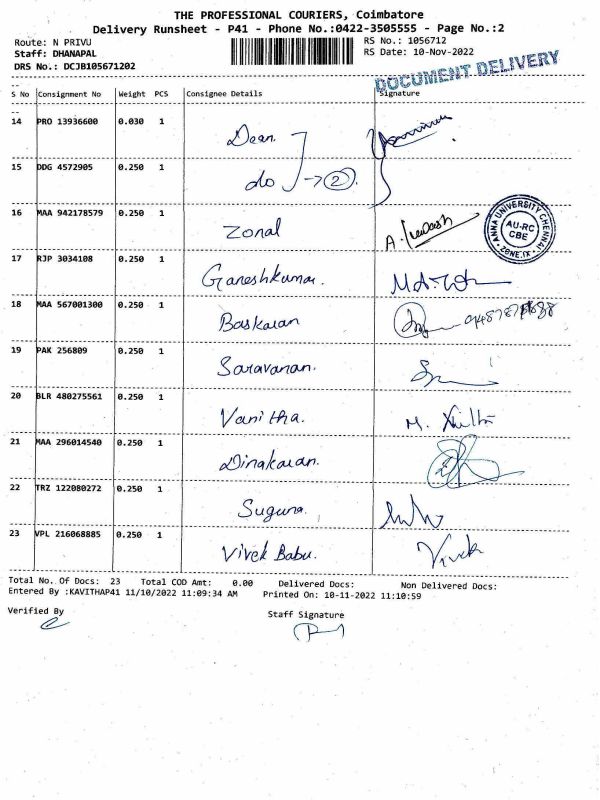 THE PROFESSIONAL COURIERS, Coimbatore
Delivery Runsheet - P41 - Phone No.:0422-3505555 - Page No.:2
Route: N PRIVU
RS No.: 1056712
Staff: DHANAPAL
RS Date: 10-Nov-2022
DRS No.: DCJB105671202
DOCUMENT DELIVERY
S No Consignment No Weight PCS Consignee Details Signature
14 PRO 13936600 0.030 1 Dean.
15 DDG 4572905 0.250 1 do → 2
16 MAA 942178579 0.250 1 Zonal
ANNA UNIVERSITY CHENNAI
AU-RC
CBE
ZONE.IX
17 RJP 3034108 0.250 1 Ganeshkumar.
18 MAA 567001300 0.250 1 Baskaran
19 PAK 256809 0.250 1 Saravanan.
20 BLR 480275561 0.250 1 Vanitha.
21 MAA 296014540 0.250 1 Dinakaran.
22 TRZ 122080272 0.250 1 Suguna.
23 VPL 216068885 0.250 1 Vivek Babu. Vivek
Total No. Of Docs: 23 Total COD Amt: 0.00 Delivered Docs: Non Delivered Docs:
Entered By :KAVITHAP41 11/10/2022 11:09:34 AM Printed On: 10-11-2022 11:10:59
Verified By
Staff Signature